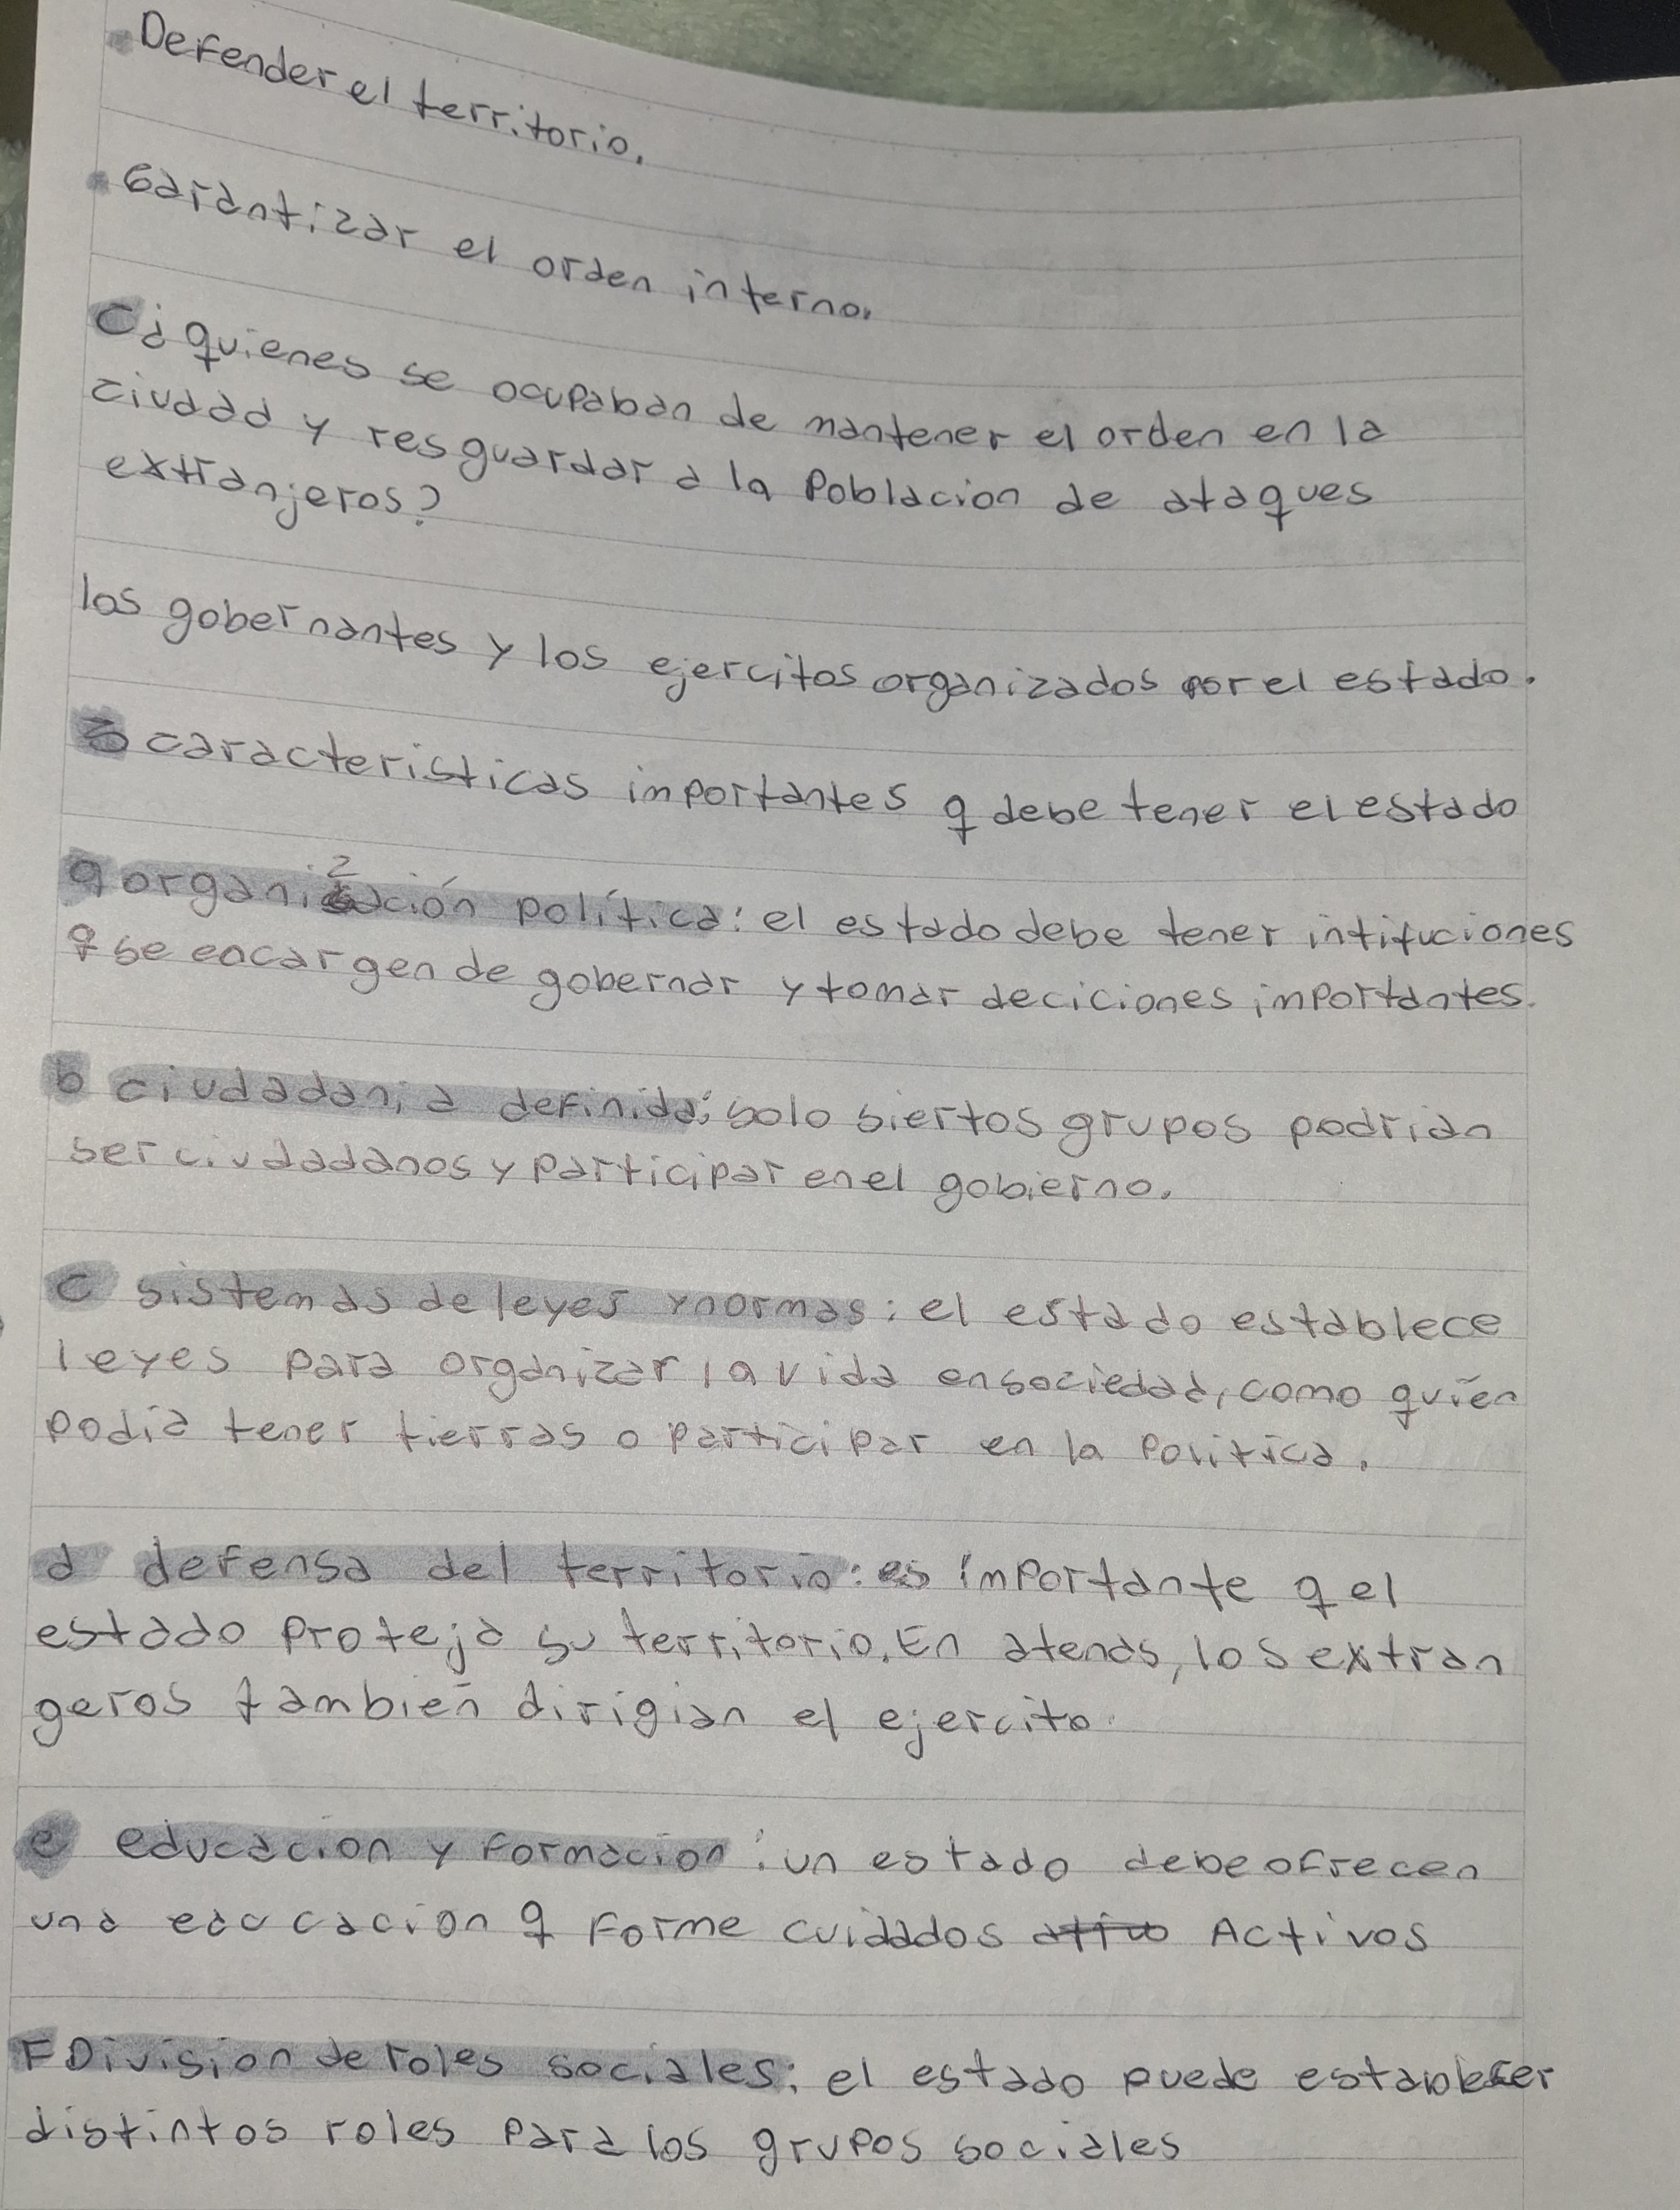 • Defender el territorio.
• Garantizar el orden interno.
C ¿quienes se ocupaban de mantener el orden en la
ciudad y resguardar a la Poblacion de ataques
extranjeros?
los gobernantes y los ejercitos organizados por el estado.
3 caracteristicas importantes q debe tener el estado
a organización política: el estado debe tener intituciones
q se encargen de gobernar y tomar deciciones importantes.
b ciudadania definida: solo siertos grupos podrian
ser ciudadanos y participar en el gobierno.
c sistemas de leyes y normas: el estado establece
leyes para organizar la vida en sociedad, como quien
podia tener tierras o participar en la Politica.
d defensa del territorio: es importante q el
estado proteja su territorio. En atenas, los extran
geros tambien dirigian el ejercito.
e educacion y formacion: un estado debe ofrecen
una educacion q forme cuidados Activos
F Division de roles sociales: el estado puede establecer
distintos roles para los grupos sociales